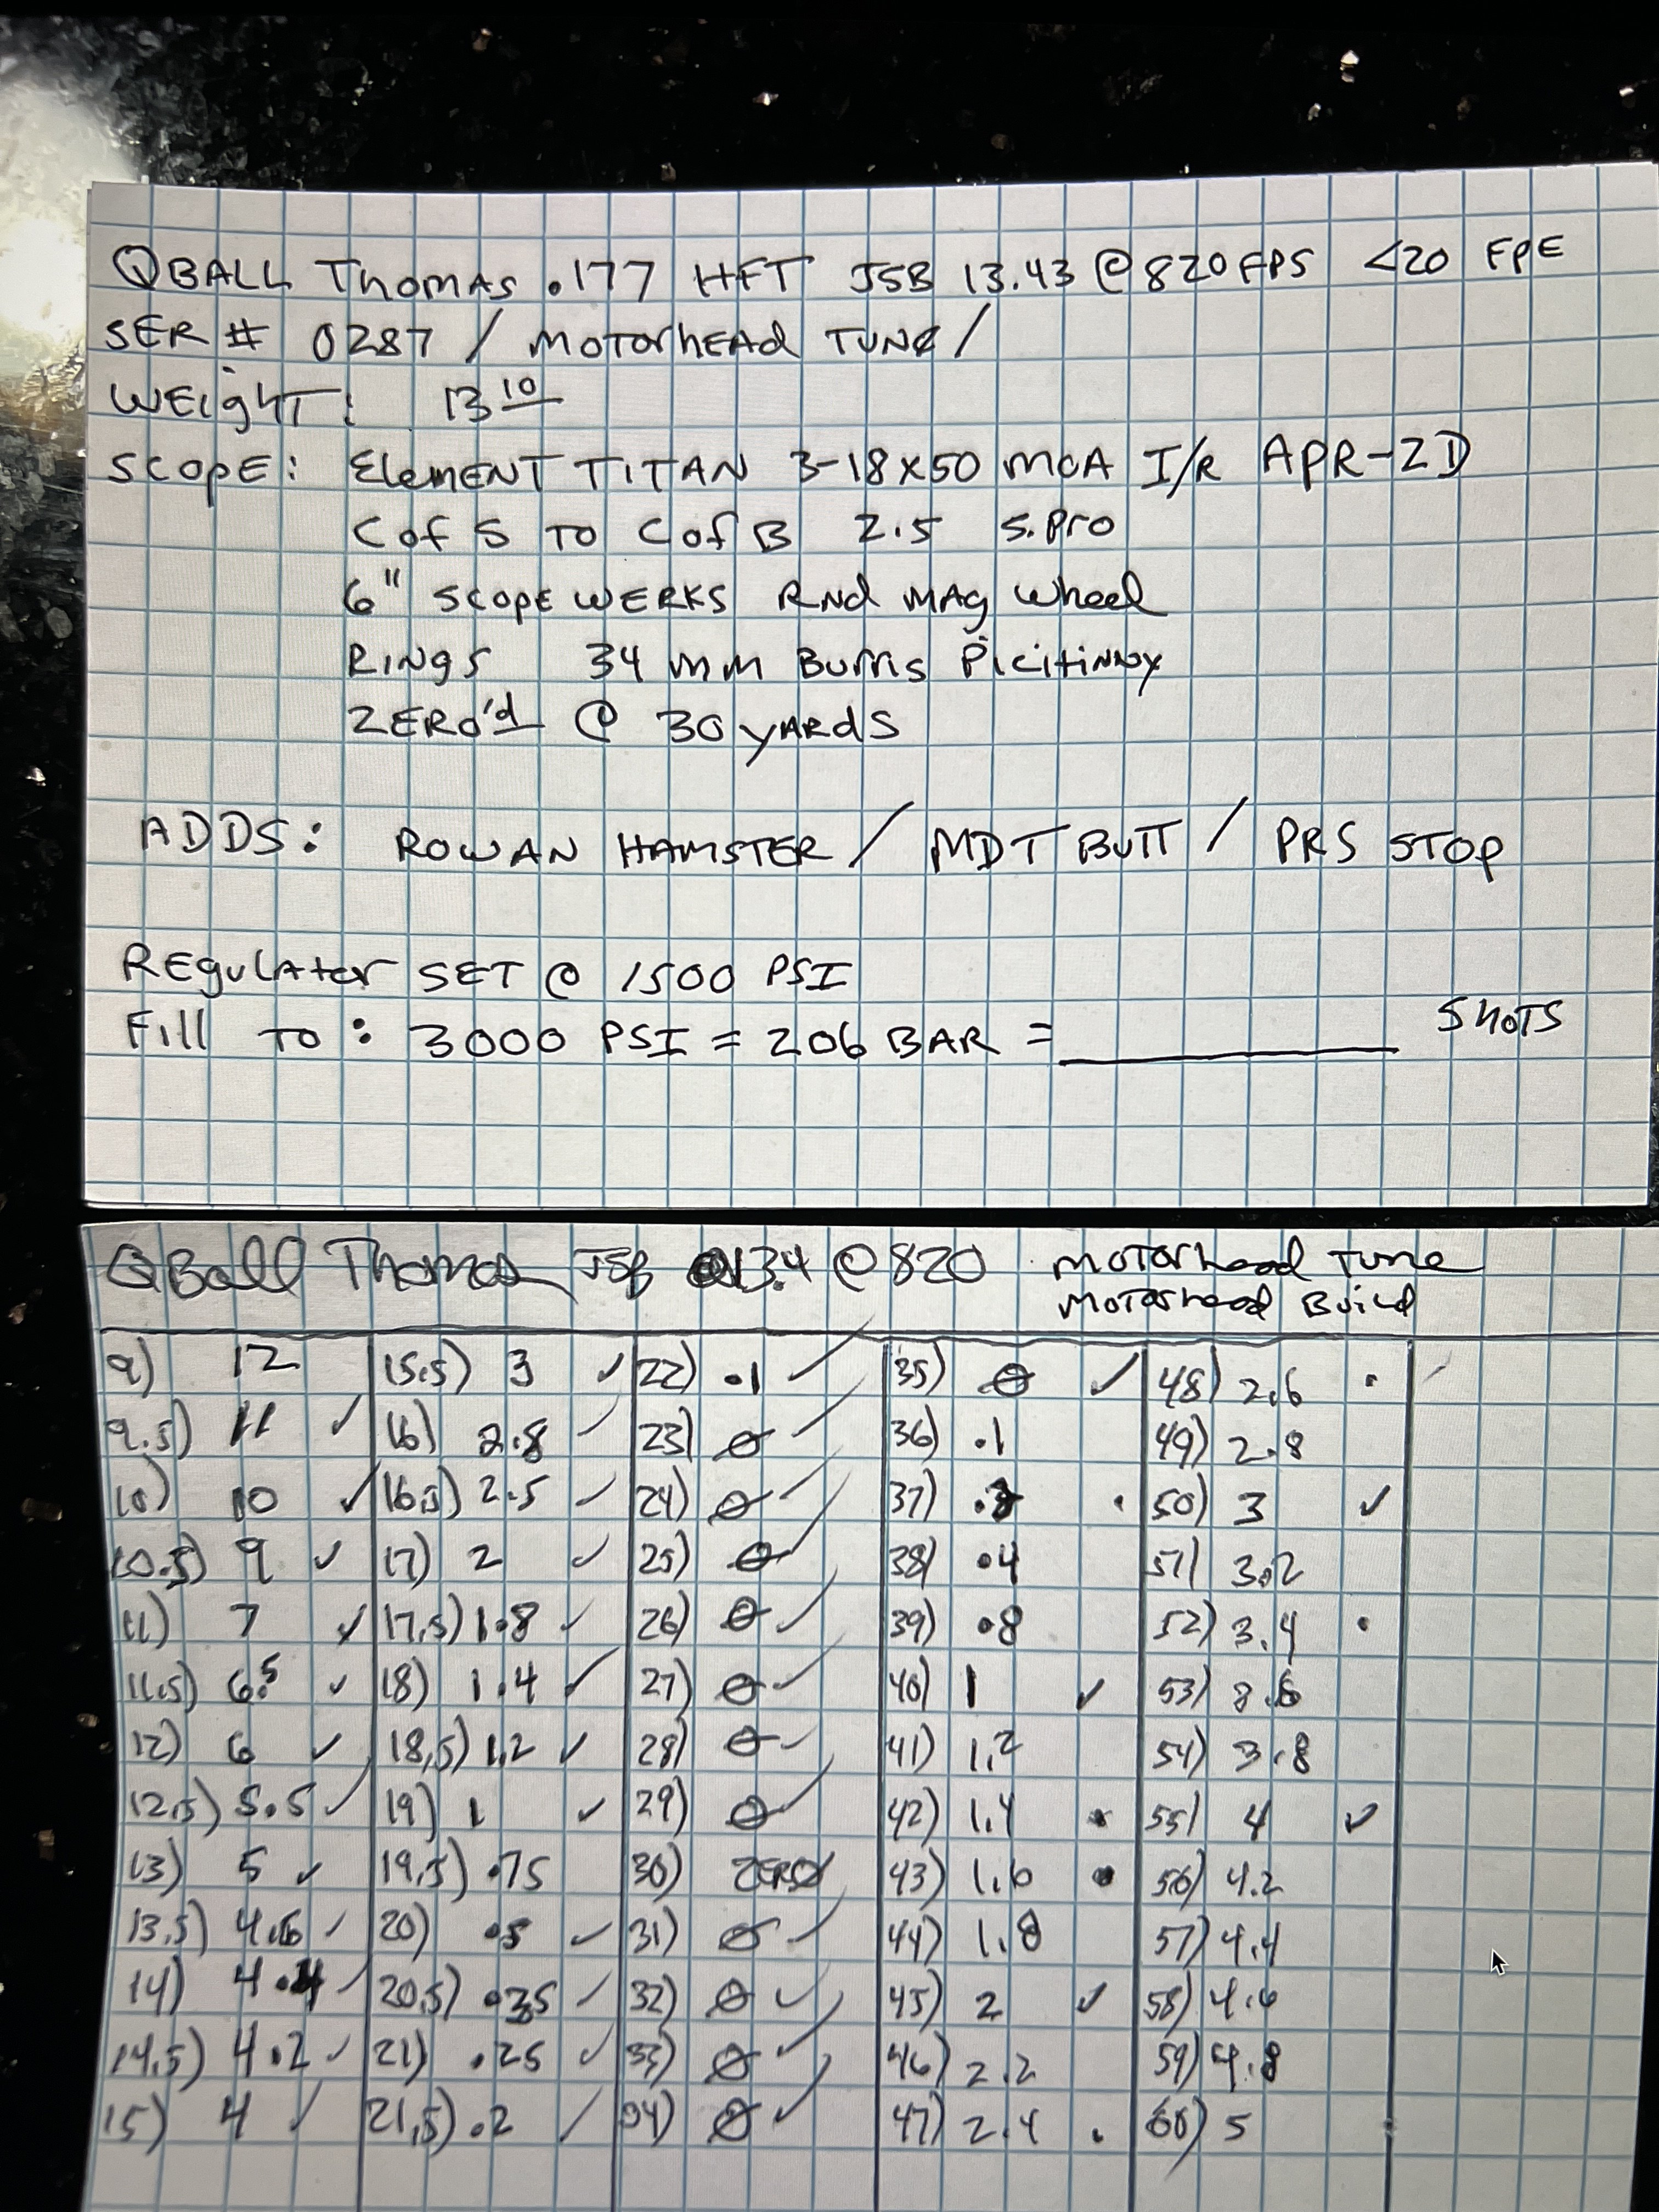 QBALL Thomas .177 HFT JSB 13.43 @ 820 FPS <20 FPE
SER # 0287 / MOTORHEAD TUNE /
WEIGHT: 13 10
SCOPE: ELEMENT TITAN 3-18X50 MOA I/R APR-2D
C of S TO C of B 2.5 S.PRO
6" SCOPE WERKS RND MAG WHEEL
RINGS 34 mm Burris Picitinny
ZERO'd @ 30 YARDS
ADDS: ROWAN HAMSTER / MDT BUTT / PRS STOP
REgulator SET @ 1500 PSI
Fill TO: 3000 PSI = 206 BAR = ________ SHOTS
QBall Thomas JSB 13.4 @ 820 Motorhead Tune
Motorhead Build
9) 12
9.5) 11 ✓
10) 10 ✓
10.5) 9 ✓
11) 7 ✓
11.5) 6.5 ✓
12) 6 ✓
12.5) 5.5 ✓
13) 5 ✓
13.5) 4.6 ✓
14) 4.4 ✓
14.5) 4.2 ✓
15) 4 ✓
15.5) 3 ✓
16) 2.8 ✓
16.5) 2.5 ✓
17) 2 ✓
17.5) 1.8 ✓
18) 1.4 ✓
18.5) 1.2 ✓
19) 1 ✓
19.5) .75
20) .5 ✓
20.5) .35 ✓
21) .25 ✓
21.5) .2 ✓
22) .1 ✓
23) 0 ✓
24) 0 ✓
25) 0 ✓
26) 0 ✓
27) 0 ✓
28) 0 ✓
29) 0 ✓
30) ZERO
31) 0 ✓
32) 0 ✓
33) 0 ✓
34) 0 ✓
35) 0 ✓
36) .1
37)
38) .4
39) .8
40) 1 ✓
41) 1.2
42) 1.4
43) 1.6
44) 1.8
45) 2 ✓
46) 2.2
47) 2.4
48) 2.6
49) 2.8
50) 3 ✓
51) 3.2
52) 3.4
53) 3.6
54) 3.8
55) 4 ✓
56) 4.2
57) 4.4
58) 4.6
59) 4.8
60) 5